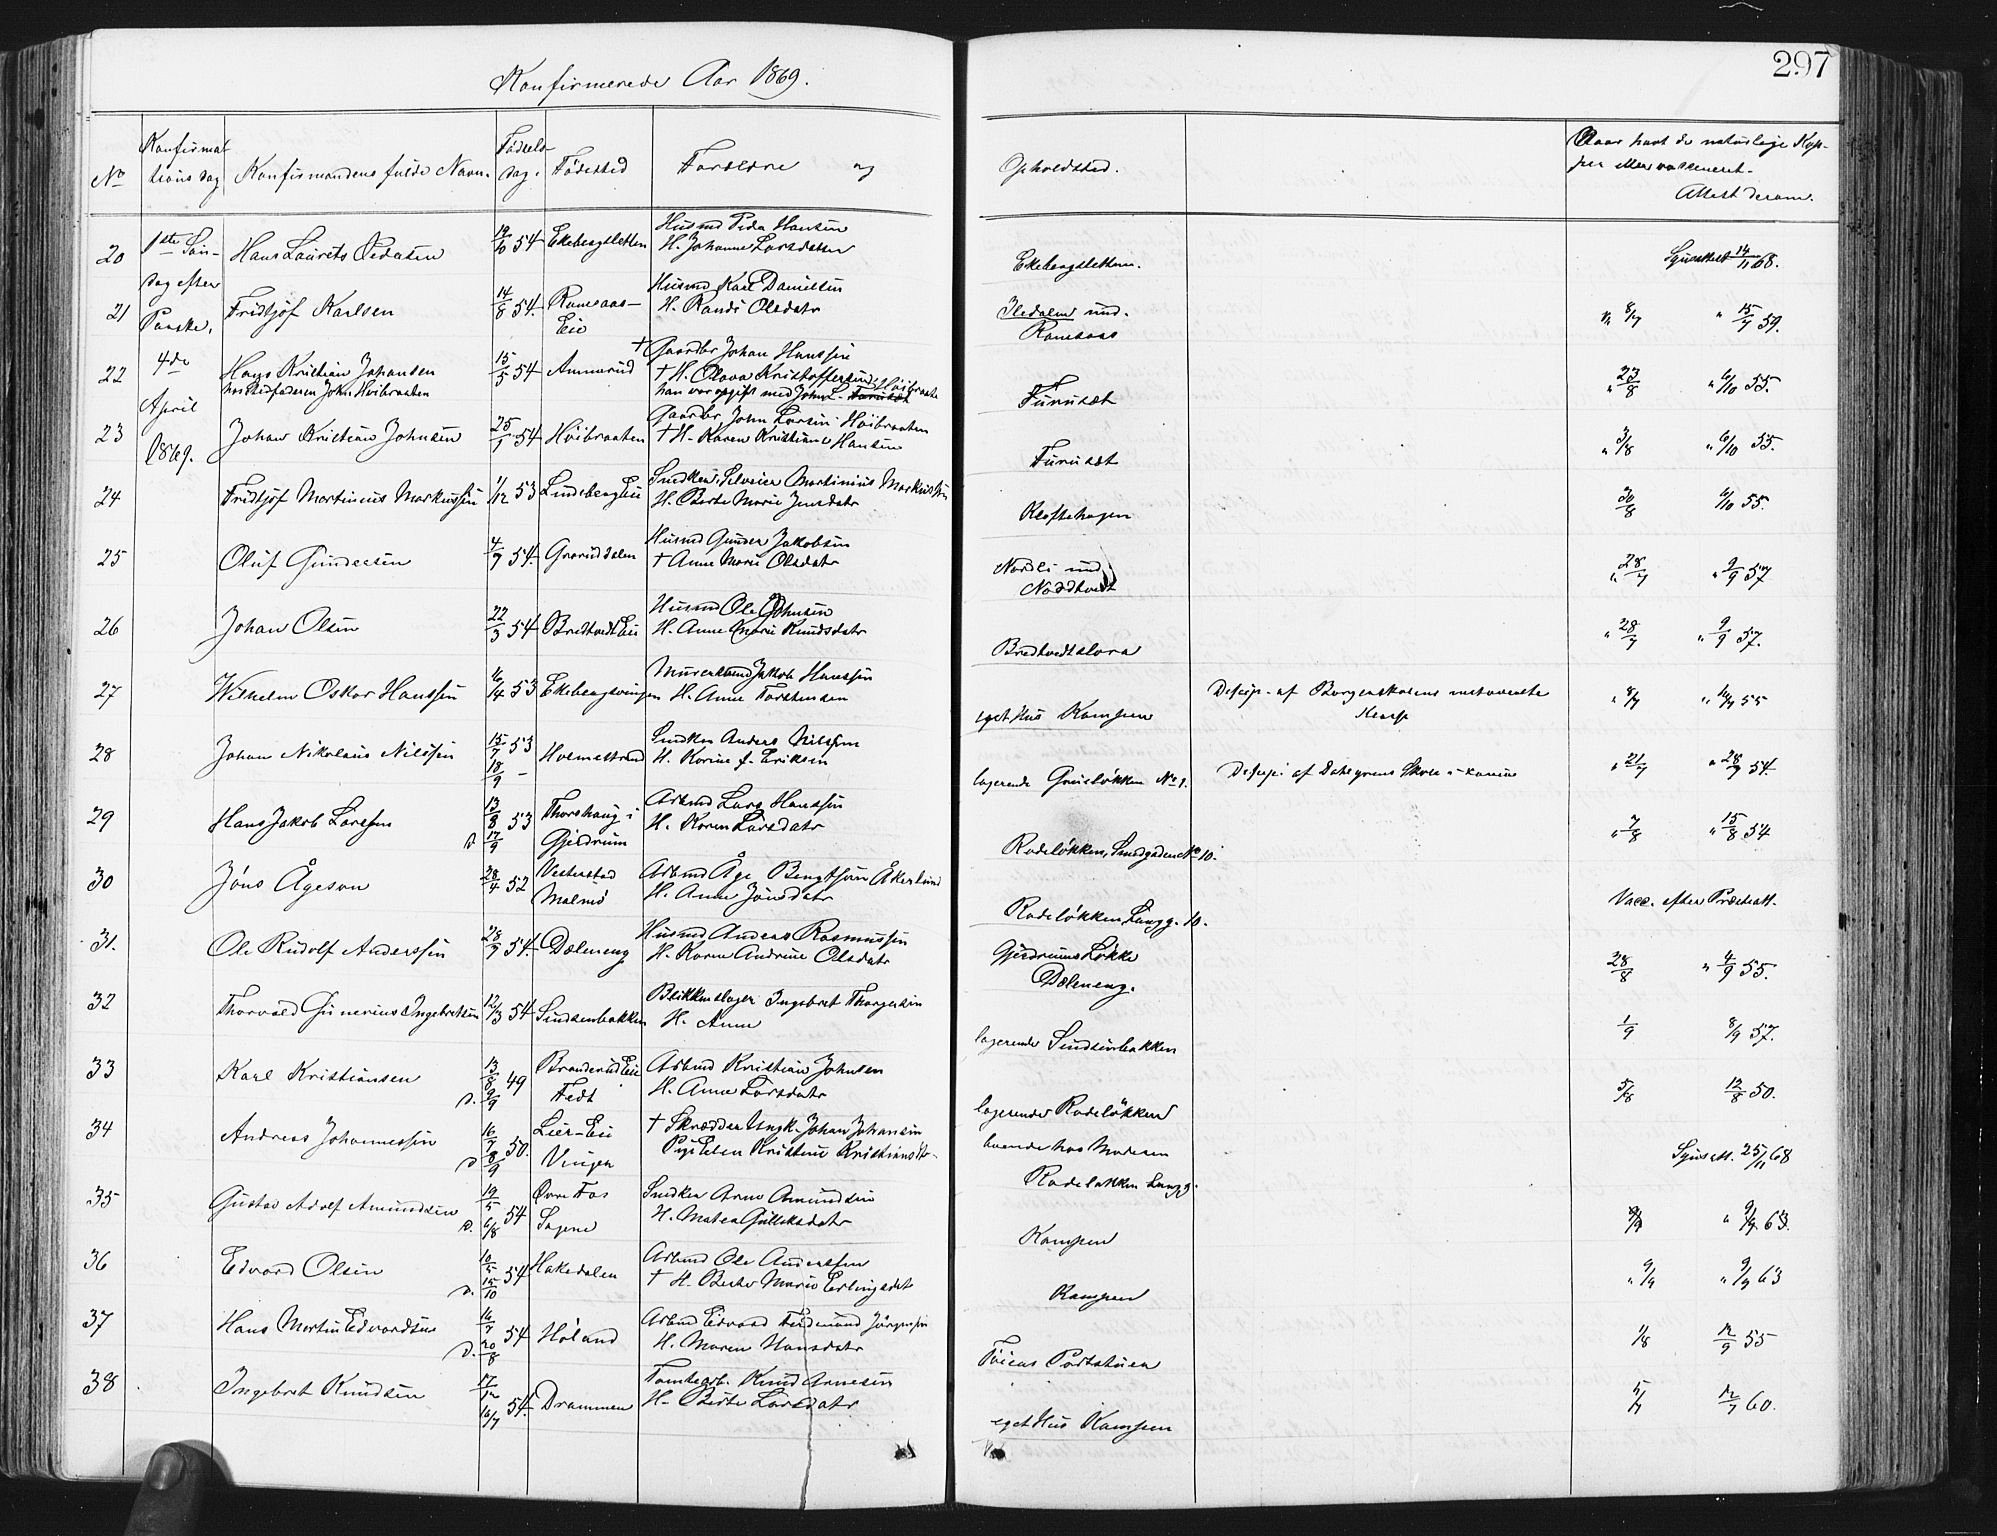 297
Konfirmerede Aar 1869.
No
Konfirmationsdag
Konfirmandens fulde Navn.
Fødselsdag.
Fødested
Forældre og
Opholdsted.
Naar havt de naturlige Kopper eller vaccineret.
Attest derom.
1ste Søndag efter Paaske, 4de April 1869.
20 Hans Laurits Pedersen 54 Ekebergsletten Husmd Peder Hansen
H. Johanne Larsdatter
Ekebergsletten. 14/11 68.
21 Fridtjof Karlsen 14/8 54. Ramsaas-Eie Husmd Karl Danielsen
H. Randi Olsdatr
und. Ramsaas 8/7 " 15/7 59.
22 Hans Kristian Johansen 15/5 54 Ammerud † Gaardbr Johan Hanssen
hos Stedfaderen John Høibraaten
† H. Olava Kristoffersen
Furusæt " 23/8 " 6/10 55.
23 Johan Kristian Johnsen 25/1 54 Høibraaten Gaardbr John Larsen Høibraaten
† H. Karen Kristiane Hansen
Furusæt " 3/8 " 6/10 55.
24 Fridtjof Martinius Markussen 1/12 53 Lindeberg Eie Martinius Markussen
H. Berte Marie Jensdatr
Kloftehagen 30/8 6/10 55.
25 Oluf Gundersen 4/7 54. Groruddalen Husmd Gunder Jakobsen
† Anne Marie Olsdatr
Nordli und Nordtvedt " 28/7 " 9/9 57
26 Johan Olsen 22/3 54 Bredtvedt Eie Husmd Ole Johnsen
H. Anne Marie Knudsdatr
Bredtvedt " 28/7 " 9/9 57.
27 Wilhelm Oskar Hanssen 53 Ekebergsvingen Jakob Hanssen
H. Anne Torstensen
eget Hus Kampen
Discip. af Borgerskolens
" 8/7 55
28 Johan Nikolaus Nilssen 15/7 53 18/9 - Holmestrand Snedker Anders Nilssen
H. Karine f. Eriksen
logerende No 1. Discip. af Skole
" 21/7 54
29 Hans Jakob Larssen 13/8 53 d 17/9 Thorshaug i Gjerdrum Arbmd Lars Hanssen
H. Karen Larsdatr
Rodeløkken, Smedgaden No 10. " 7/8 " 15/8 54
30 Jöns Ågeson 28/4 52 Vesterstad Malmö Arbmd Åge Bengtson Åkerlund
H. Anna Jönsdatr
Rodeløkken, Langg. 10. Vacc. efter Præsteatt.
31. Ole Rudolf Anderssen 28/7 54. Dæleneng Husmd Anders Rasmussen
H. Karen Andrine Olsdatr
Gjerdrums Løkke Dæleneng. 28/8 " 4/9 55.
32 Thorvald Gunerius Ingebretsen 12/3 54 Sinsenbakken Blikkenslager Ingebret Thorgersen
H. Anne
logerende Sinsenbakken 1/9 8/9 57.
33 Karl Kristiansen 13/8 49 d. 9/9 Eie Fedt Arbmd Kristian Johnsen
H. Anne Larsdatr
logerende Rodeløkken 5/8 12/8 50.
34 Andreas Johannessen 16/7 50. d 8/9 Lier-Eie Vinger † Skrædder Ungk. Johan Johansen
Pige Elen Kristine Kristiansdtr
boende hos Moderen Rodeløkken Langg. 25/11 68
35 Gustav Adolf Amundsen 19/5 54 d. 6/8 Øvre Fos Sagene Snedker Arne Amundsen
H. Matea Gulliksdatr
Kampen 9/9 " 9/9 63.
36 Edvard Olsen 10/5 54 d. 15/10 Hakedalen Arbmd Ole Anderssen
† H. Berte Marie Erlingsdat
Kampen " 9/9 " 9/9 63
37 Hans Martin Edvardsen 16/7 54 d. 20/8 Høland Arbmd Edvard Ferdinand Jørgensen
H. Maren Hansdatr
Tøiens Portstuen 1/8 12/9 55
38 Ingebret Knudsen 54. 16/7 Drammen Tomtearb. Knud Arnesen
H. Berte Larsdatr
eget Hus Kampen 5/7 12/7 60.